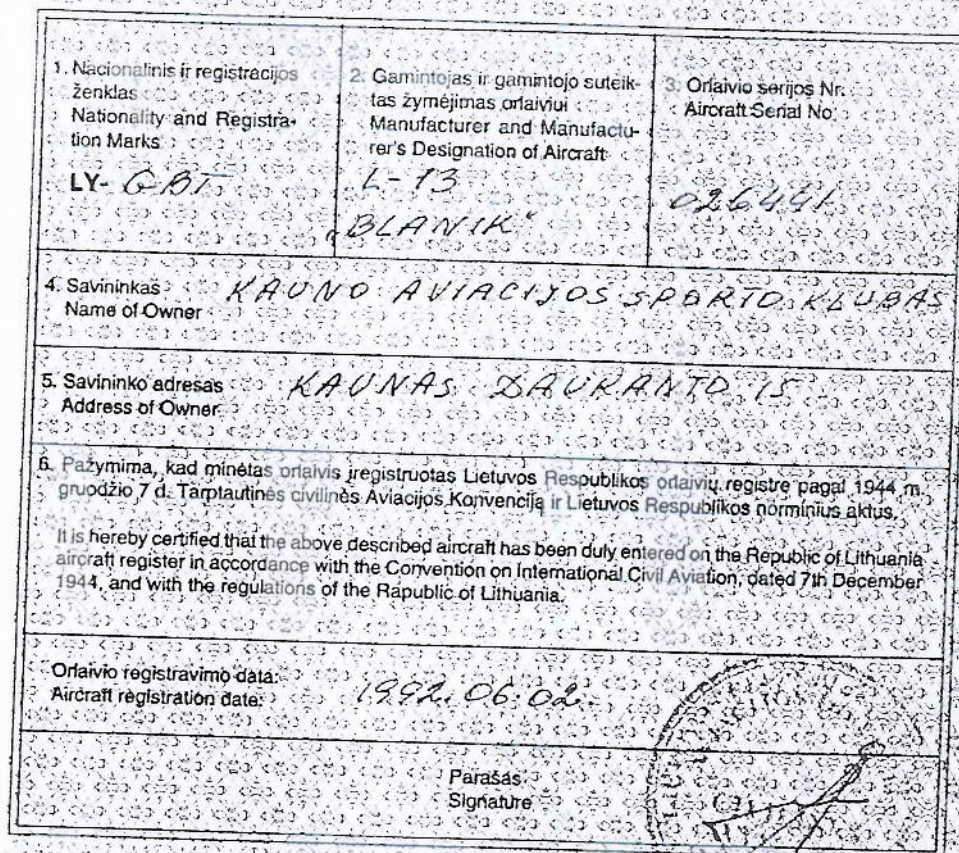 1. Nacionalinis ir registracijos
ženklas
Nationality and Registra-
tion Marks
LY- GBT
2. Gamintojas ir gamintojo suteik-
tas žymėjimas orlaiviui
Manufacturer and Manufactu-
rer's Designation of Aircraft
L-13
„BLANIK"
3. Orlaivio serijos Nr.
Aircraft Serial No
026441
4. Savininkas
Name of Owner
KAUNO AVIACIJOS SPORTO KLUBAS
5. Savininko adresas
Address of Owner
KAUNAS DAUKANTO 15
6. Pažymima, kad minėtas orlaivis įregistruotas Lietuvos Respublikos orlaivių registre pagal 1944 m.
gruodžio 7 d. Tarptautinės civilinės Aviacijos Konvenciją ir Lietuvos Respublikos norminius aktus.
It is hereby certified that the above described aircraft has been duly entered on the Republic of Lithuania
aircraft register in accordance with the Convention on International Civil Aviation, dated 7th December
1944, and with the regulations of the Rapublic of Lithuania.
Orlaivio registravimo data:
Aircraft registration date:
1992.06.02
Parašas
Signature